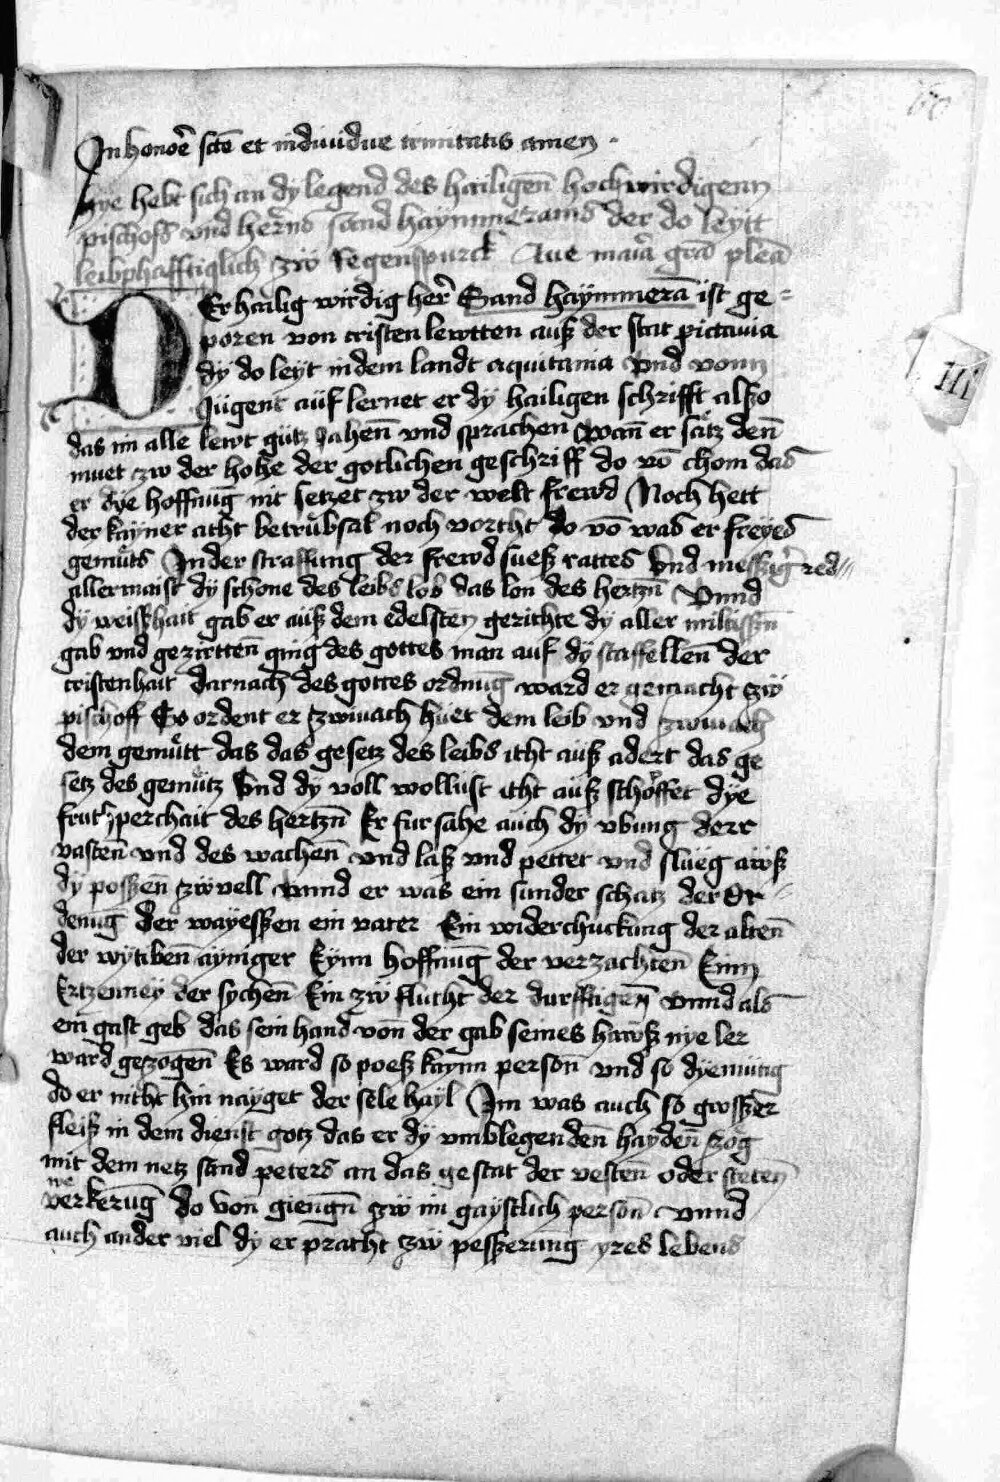 In honoē sctē et indiuidue trinitatis amen .
Hye hebt sich an dÿ legend des hailigen̄ hochwirdigenn
pischofs vnd herñs sand haÿmmerams der do leÿtt
leibphafftiglich zw̄ Regenspurck Aue maīa gr̄a plēa
DEr hailig wirdig her̄ Sand haÿmmerā ist ge=
poren von cristen lewtten auß der stat pictauia
dÿ do leÿt in dem landt aquitania vnd vonn
Jugent auf lernet er dÿ hailigen schrifft alßo
das im alle lewt gütz iahen̄ vnd sprachen wan̄ er sätz den̄
muet zw der hohe der gotlichen geschriff do vō chom das
er dÿe hoffnūg nit setzet zw der welt frewd Noch hett
der kaÿner acht betrübsal noch vorcht do vō was er freÿes
gemüts In der straffung der frewd sueß rattes Vnd red
allermaist dÿ schone des leibs lob das lon des hertzn̄ Vnnd
dÿ weißhait gab er auß dem edelsten gerichte dÿ aller miltissn̄
gab vnd gezirtten̄ ging des gottes man auf dÿ staffellen̄ der
cristenhait darnach des gottes ordnūg ward er gemacht zw̄
pischoff Es ordent er zwiuach huet dem leib vnd zwiuach
dem gemütt das das gesetz des leibs icht auß adert das ge
setz des gemütz Vnd dÿ voll wollust icht auß schöffet dÿe
fruchperchait des hertzn̄ Er fursahe auch dÿ vbung derr
vasten̄ vnd des wachen̄ vnd laß vnd pettet vnd slueg awß
dÿ poßen̄ zw̄vell Vnnd er was ein sunder schatz der Or=
denūg der waÿeßen ein vater Ein widerchuckung der alten̄
der wÿtiben̄ aÿniger Eÿnn hoffnūg der verzachten̄ Einn
Ertzenneÿ der sÿchen̄ Ein zw̄ flucht der durfftigen̄ vnnd als
ein gast geb das sein hand von̄ der gab seines hawß nÿe ler
ward gezogen̄ Es ward so poeß kaÿnn person̄ vnd so dÿemütig
do er nicht hin naÿget der sele haÿl Im was auch so groſſer
fleiß in dem dienst gotz das er dÿ vmblegenden̄ haÿden̄ zog
mit dem netz sand peters an das gestat der vesten̄ oder steten̄
we
verkerūg do von̄ giengn̄ zw̄ im gaÿstlich person̄ vnnd
auch ander viel dÿ er pracht zw̄ peßerung yres lebens